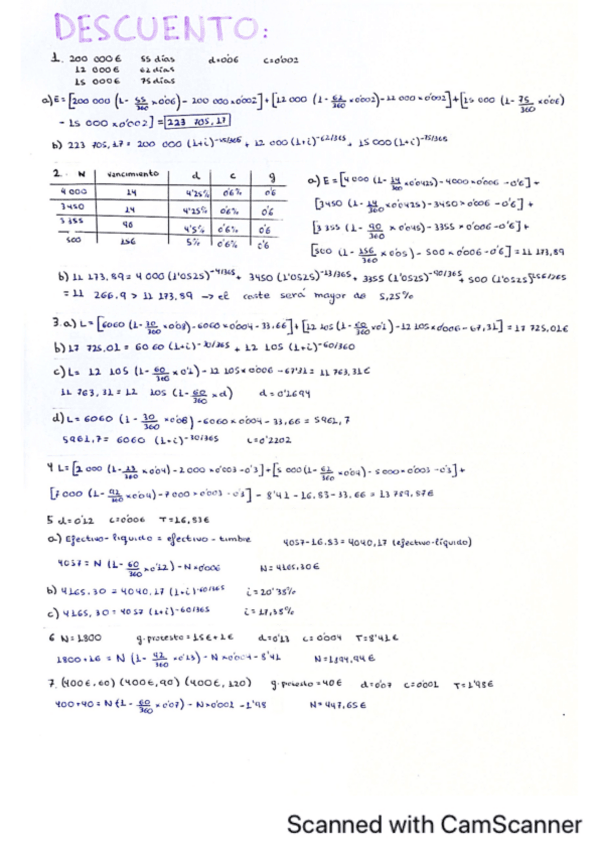 DESCUENTO:
1. 200 000€ 55 días d=0'06 c=0'002
12 000€ 62 días
15 000€ 75 días
a) E = [200 000 (1- 55/360 x0'06) - 200 000 x0'002] + [12 000 (1- 62/360 x0'002) - 12 000 x0'002] + [15 000 (1- 75/360 x0'06)
- 15 000 x0'002] = 223 705,17
b) 223 705,17 = 200 000 (1+i)^-55/365 + 12 000 (1+i)^-62/365 + 15 000 (1+i)^-75/365
2. N vencimiento d c g
4 000 14 4'25% 0'6% 0'6
3450 14 4'25% 0'6% 0'6
3 355 90 4'5% 0'6% 0'6
500 156 5% 0'6% 0'6
a) E = [4 000 (1- 14/360 x0'0425) - 4000 x0'006 - 0'6] +
[3450 (1- 14/360 x0'0425) - 3450 x0'006 - 0'6] +
[3 355 (1- 90/360 x0'045) - 3355 x0'006 - 0'6] +
[500 (1- 156/360 x0'05) - 500 x0'006 - 0'6] = 11 173,89
b) 11 173,89 = 4 000 (1'0525) + 3450 (1'0525) + 3355 (1'0525)^-90/365 + 500 (1'0525)
= 11 266,9 > 11 173,89 → el coste será mayor de 5,25%
3. a) L = [6060 (1- 30/360 x0'08) - 6060 x0'004 - 33.66] + [12 105 (1- 60/360 x0'1) - 12 105 x0'006 - 67,31] = 17 725,01€
b) 17 725,01 = 60 60 (1+i)^-30/365 + 12 105 (1+i)^-60/360
c) L = 12 105 (1- 60/360 x0'1) - 12 105 x0'006 - 67'31 = 11 763,31€
11 763,31 = 12 105 (1- 60/360 x d) d = 0'1694
d) L = 6060 (1- 30/360 x0'08) - 6060 x0'004 - 33,66 = 5961,7
5961,7 = 6060 (1+i)^-30/365 i = 0'2202
4 L = [2 000 (1- x0'04) - 2 000 x0'003 - 0'3] + [5 000 (1- 62/360 x0'04) - 5 000 x0'003 - 0'3] +
[7 000 (1- 92/360 x0'04) - 7 000 x0'003 - 0'3] - 8'41 - 16.83 - 33.66 = 13 789,87€
5 d=0'12 c=0'006 T=16,83€
a) Efectivo-líquido = efectivo - timbre 4057 - 16.83 = 4040,17 (efectivo-líquido)
4057 = N (1- 60/360 x0'12) - N x0'006 N = 4165,30€
b) 4165.30 = 4040,17 (1+i)^-60/365 i = 20'35%
c) 4165,30 = 4057 (1+i)^-60/365 i = 17,35%
6 N=1800 g.protesto = 15€+1€ d=0'13 c=0'004 T=8'41€
1800+16 = N (1- 42/360 x0'13) - N x0'004 - 8'41 N = 1894,94€
7. (400€,60) (400€,90) (400€,120) g.protesto = 40€ d=0'07 c=0'001 T=1'98€
400+40 = N (1- 60/360 x0'07) - N x0'001 - 1'98 N = 447,65€
Scanned with CamScanner